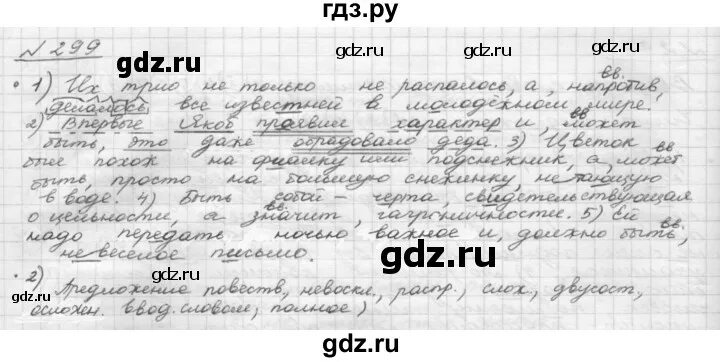 гдз.ру
№ 299
gdz.ru gdz.ru
• 1) Их трио не только не распалось, а, напротив, вв.
делалось все известней в молодёжном мире.
gdz.ru gdz.ru
2) Впервые Якоб проявил характер и, может вв.
быть, это даже обрадовало деда. 3) Цветок
gdz.ru gdz.ru
был похож на фиалку или подснежник, а, может вв.
быть, просто на большую снежинку, не тающую
gdz.ru gdz.ru
в воде. 4) Быть собой – черта, свидетельствующая
о цельности, а значит, гармоничности. 5) Ей вв.
gdz.ru gdz.ru
надо передать ночью важное и, должно быть, вв.
невеселое письмо.
gdz.ru gdz.ru
• 2)
Предложение повеств, невоскл., распр., слох., двусост,
gdz.ru gdz.ru
ослохен. ввод. словом, полное)
gdz.ru